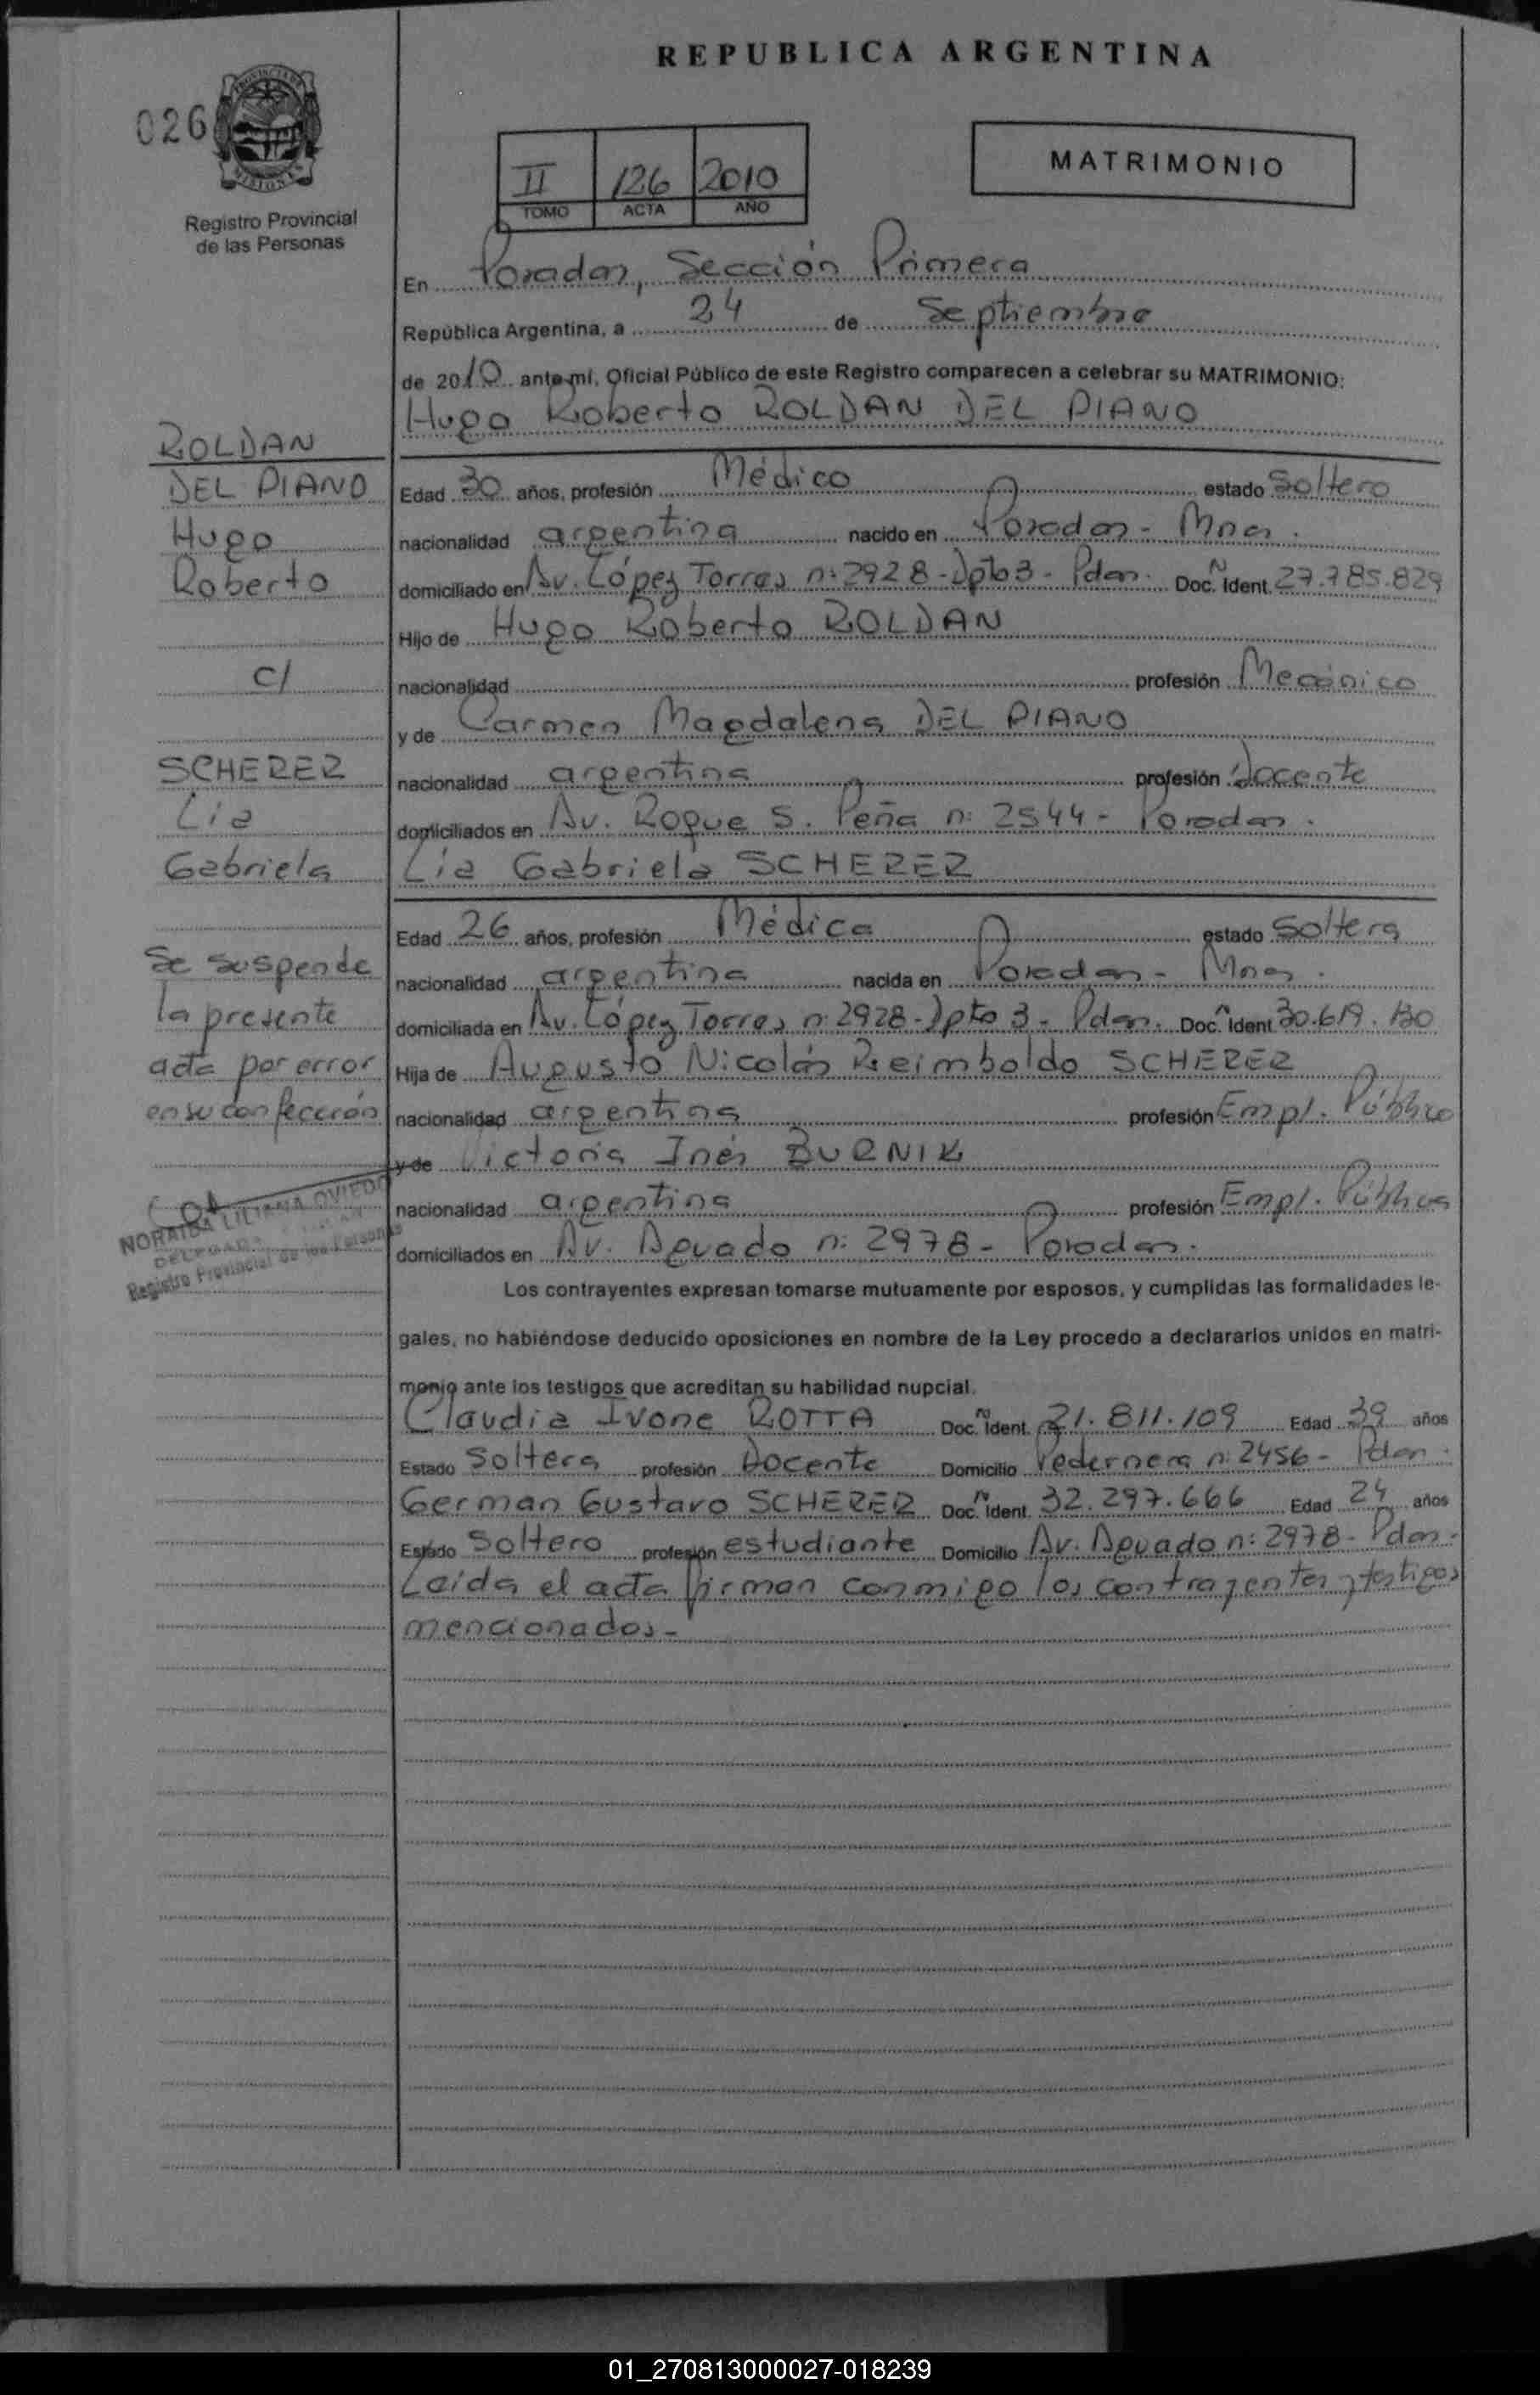 REPUBLICA ARGENTINA
026
PROVINCIA DE
MISIONES
Registro Provincial
de las Personas
II 126 2010
TOMO ACTA AÑO
MATRIMONIO
En Posadas, Sección Primera
República Argentina, a 24 de Septiembre
de 2010 ante mí, Oficial Público de este Registro comparecen a celebrar su MATRIMONIO:
Hugo Roberto ROLDAN DEL PIANO
ROLDAN
DEL PIANO
Hugo
Roberto
c/
SCHERER
Lia
Gabriela
Se suspende
la presente
acta por error
en su confección
NORAIDA LILIANA OVIEDO
DELEGADA
Registro Provincial de las Personas
Edad 30 años, profesión Médico estado Soltero
nacionalidad argentina nacido en Posadas - Mnes.
domiciliado en Av. López Torres n: 2928 - Dpto 3 - Pdas. Doc. N Ident. 27.785.829
Hijo de Hugo Roberto ROLDAN
nacionalidad profesión Mecánico
y de Carmen Magdalena DEL PIANO
nacionalidad argentina profesión docente
domiciliados en Av. Roque S. Peña n: 2544 - Posadas.
Lia Gabriela SCHERER
Edad 26 años, profesión Médica estado Soltera
nacionalidad argentina nacida en Posadas - Mnes.
domiciliada en Av. López Torres n: 2928 - Dpto 3 - Pdas. Doc. N Ident 30.619.130
Hija de Augusto Nicolás Reimboldo SCHERER
nacionalidad argentina profesión Empl. Público
y de Victoria Inés BURNIK
nacionalidad argentina profesión Empl. Pública
domiciliados en Av. Aguado n: 2978 - Posadas.
Los contrayentes expresan tomarse mutuamente por esposos, y cumplidas las formalidades le-
gales, no habiéndose deducido oposiciones en nombre de la Ley procedo a declararlos unidos en matri-
monio ante los testigos que acreditan su habilidad nupcial.
Claudia Ivone ROTTA Doc. N Ident. 21.811.109 Edad 39 años
Estado Soltera profesión Docente Domicilio Pedernera n: 2456 - Pdas.
German Gustavo SCHERER Doc. N Ident. 32.297.666 Edad 24 años
Estado Soltero profesión estudiante Domicilio Av. Aguado n: 2978 - Pdas.
Leída el acta firman conmigo los contrayentes y testigos
mencionados -
01_270813000027-018239